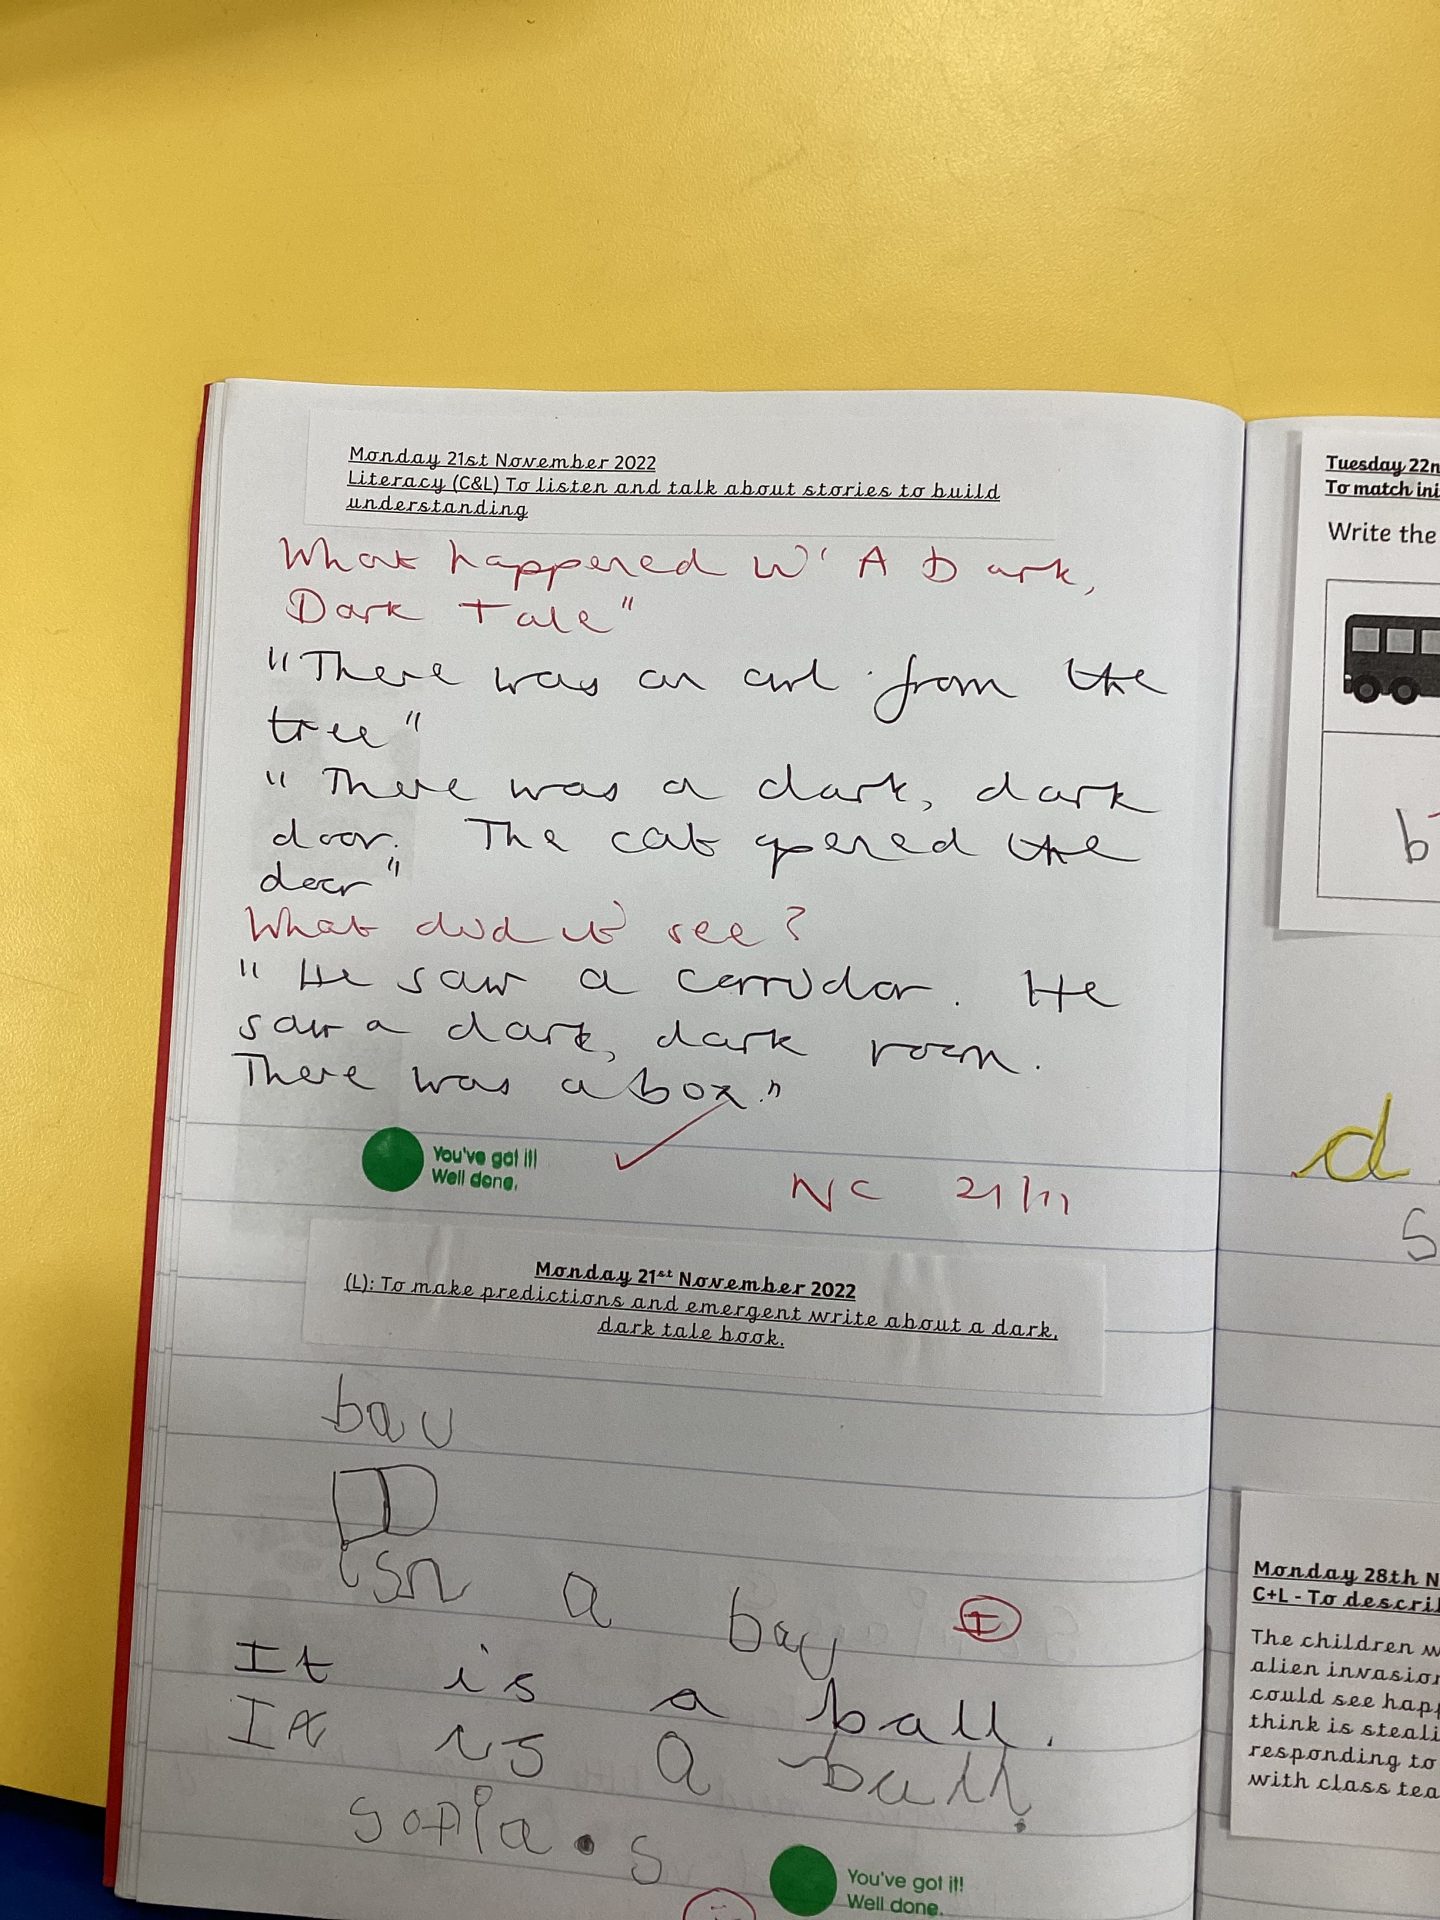 Monday 21st November 2022
Literacy (C&L) To listen and talk about stories to build
understanding
What happened in 'A Dark,
Dark Tale"
"There was an owl from the
tree"
"There was a dark, dark
door. The cat opened the
door"
What did it see?
"He saw a corridor. He
saw a dark, dark room.
There was a box."
You've got it!
Well done.
NC 21/11
Monday 21st November 2022
(L): To make predictions and emergent write about a dark,
dark tale book.
bau
isn a bau
I
It is a ball.
It is a ball.
sofia. s
You've got it!
Well done.
Tuesday 22n
To match ini
Write the
b
d
s
Monday 28th N
C+L - To descri
The children w
alien invasion
could see happ
think is steali
responding to
with class tea